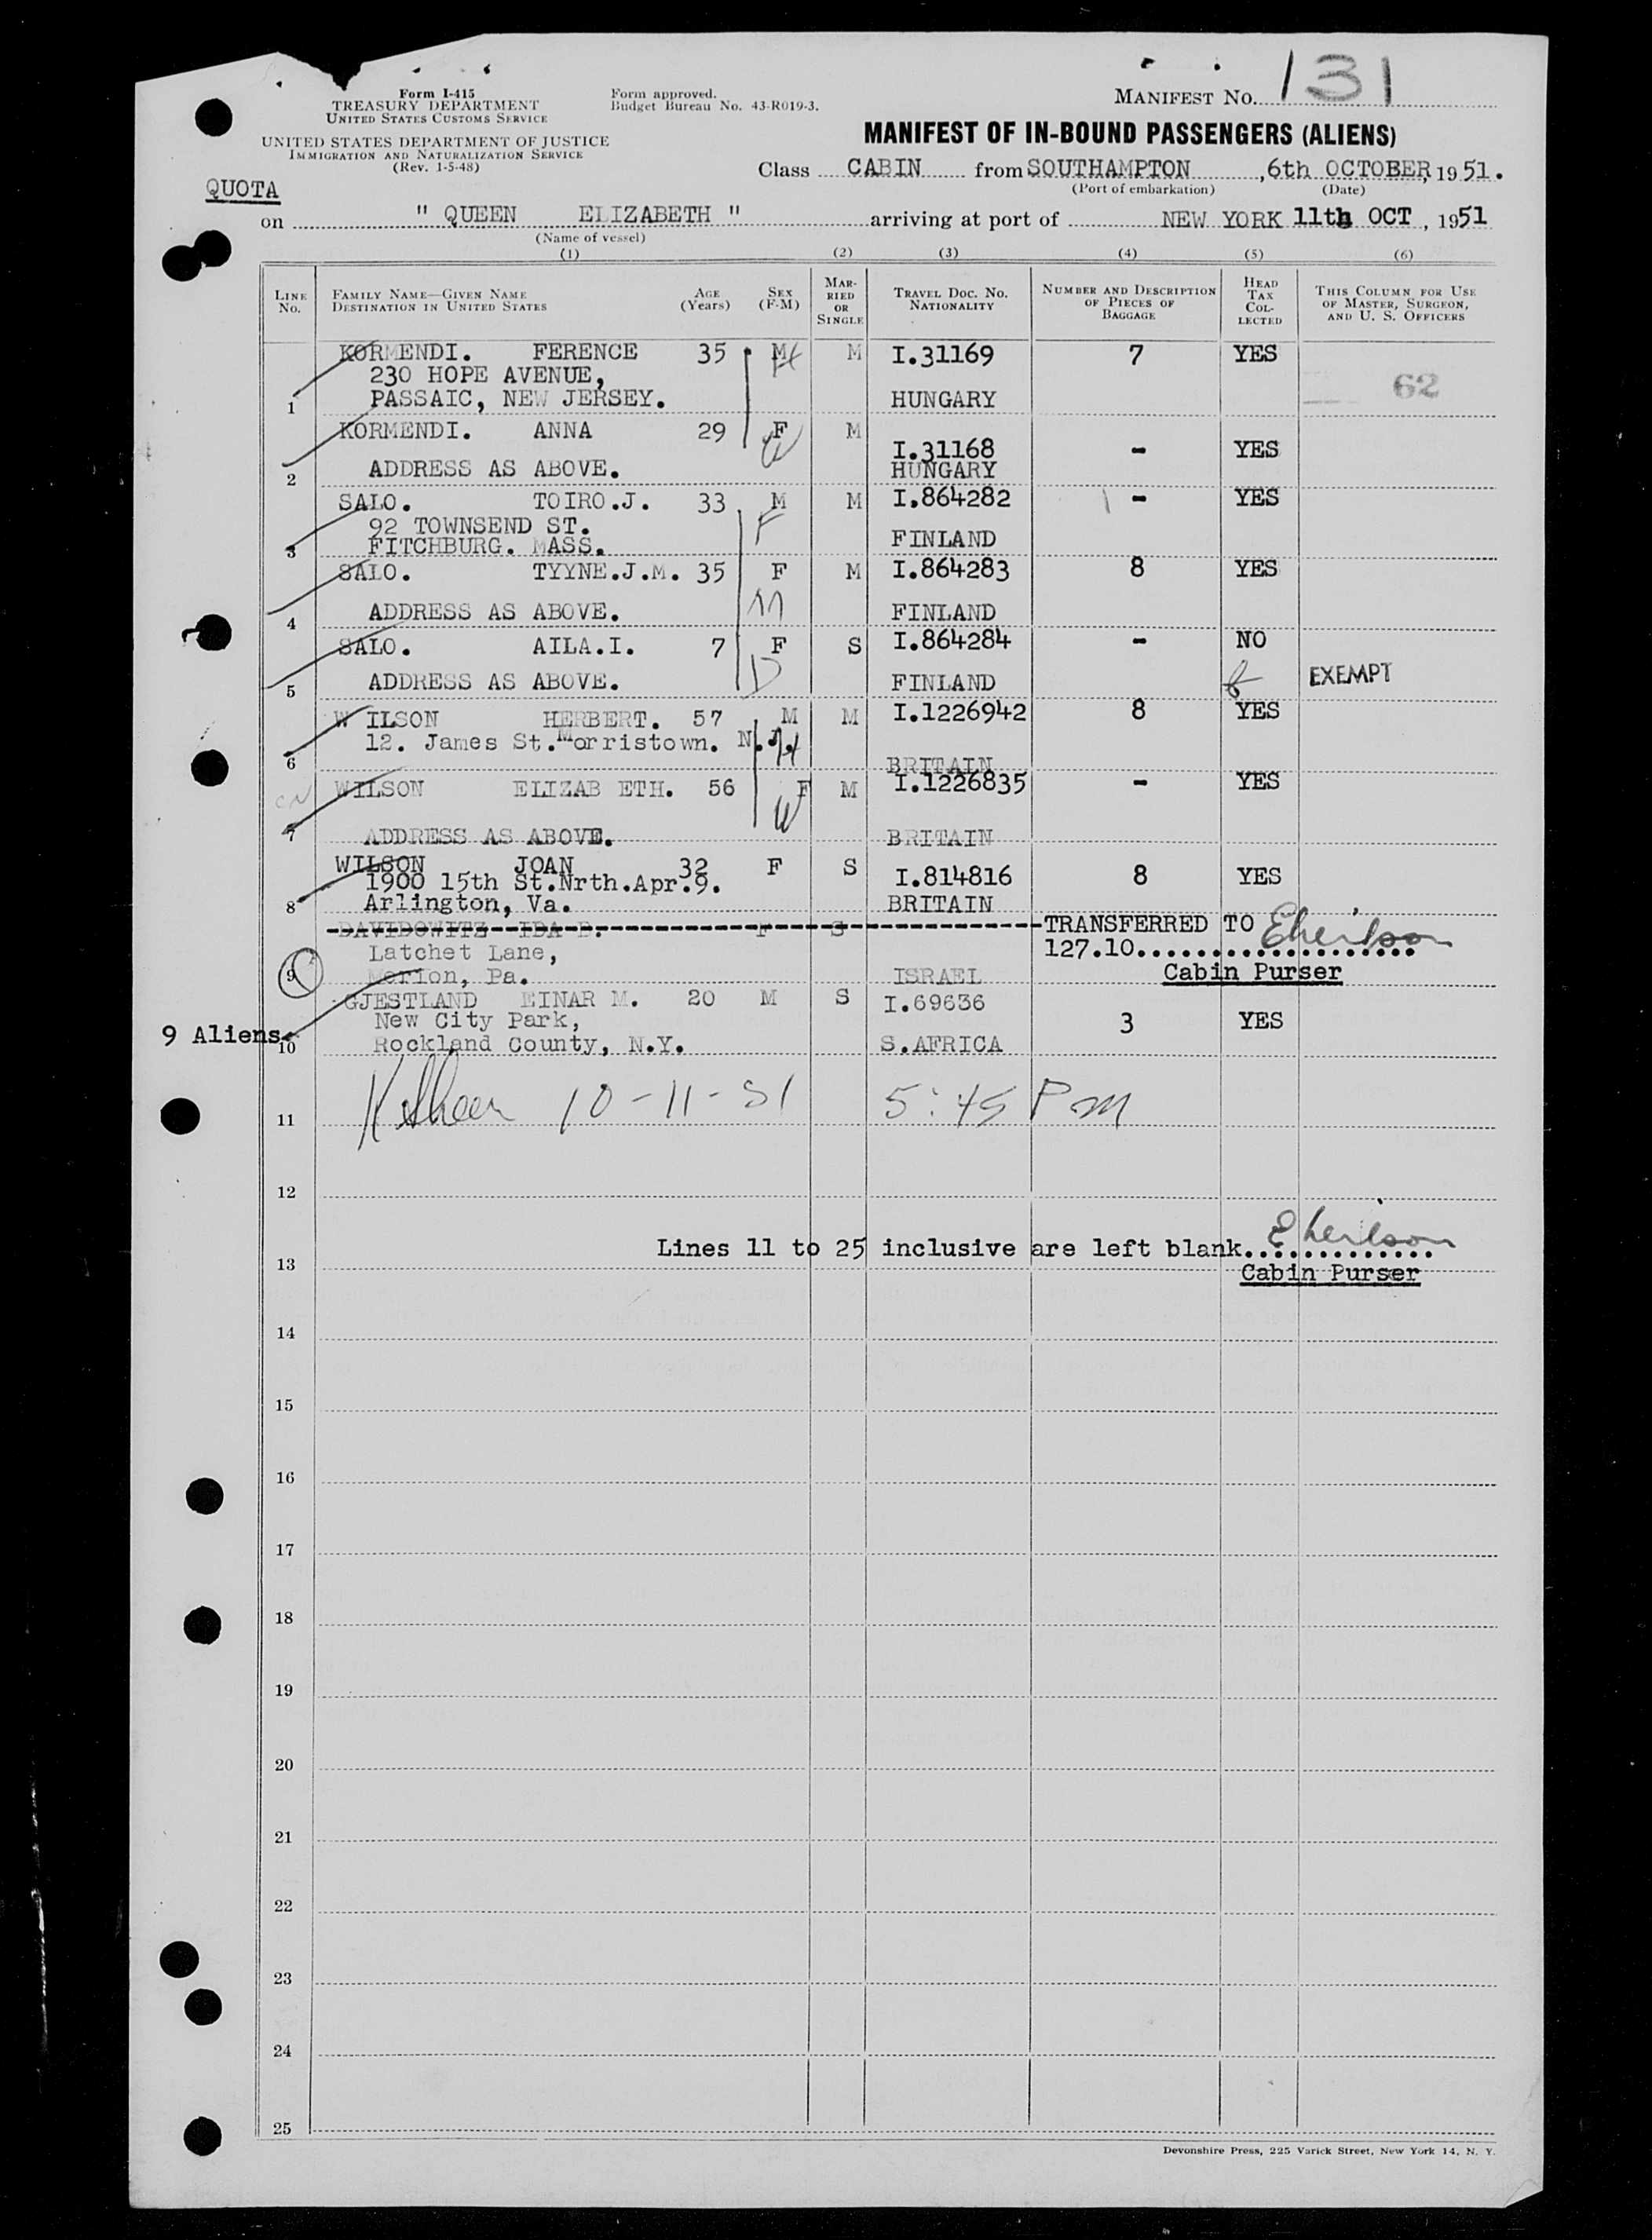 Form I-415
TREASURY DEPARTMENT
UNITED STATES CUSTOMS SERVICE
UNITED STATES DEPARTMENT OF JUSTICE
IMMIGRATION AND NATURALIZATION SERVICE
(Rev. 1-5-48)
Form approved.
Budget Bureau No. 43-R019-3.
MANIFEST NO. 131
MANIFEST OF IN-BOUND PASSENGERS (ALIENS)
Class CABIN from SOUTHAMPTON, 6th OCTOBER, 1951.
(Port of embarkation) (Date)
QUOTA
on " QUEEN ELIZABETH " arriving at port of NEW YORK 11th OCT, 1951
(Name of vessel)
(1) (2) (3) (4) (5) (6)
LINE NO.
FAMILY NAME—GIVEN NAME
DESTINATION IN UNITED STATES
AGE (Years)
SEX (F-M)
MARRIED OR SINGLE
TRAVEL DOC. NO.
NATIONALITY
NUMBER AND DESCRIPTION OF PIECES OF BAGGAGE
HEAD TAX COLLECTED
THIS COLUMN FOR USE OF MASTER, SURGEON, AND U. S. OFFICERS
KORMENDI. FERENCE 35 M H M I.31169 7 YES
230 HOPE AVENUE,
62
1 PASSAIC, NEW JERSEY. HUNGARY
KORMENDI. ANNA 29 F W M I.31168 - YES
2 ADDRESS AS ABOVE. HUNGARY
SALO. TOIRO.J. 33 M M I,864282 - YES
92 TOWNSEND ST. F
3 FITCHBURG. MASS. FINLAND
SALO. TYYNE.J.M. 35 F M I.864283 8 YES
4 ADDRESS AS ABOVE. M FINLAND
SALO. AILA.I. 7 F S I.864284 - NO
5 ADDRESS AS ABOVE. D FINLAND EXEMPT
W ILSON HERBERT. 57 M M I.1226942 8 YES
12. James St. Morristown. N.J. H
6 BRITAIN
CN WILSON ELIZAB ETH. 56 F M I.1226835 - YES
W
7 ADDRESS AS ABOVE. BRITAIN
WILSON JOAN 32 F S I.814816 8 YES
1900 15th St.Nrth.Apr.9.
8 Arlington, Va. BRITAIN
DAVIDOWITZ IDA F S TRANSFERRED TO
Latchet Lane, 127.10
9 Merion, Pa. ISRAEL Cabin Purser
GJESTLAND EINAR M. 20 M S I.69636
New City Park, 3 YES
9 Aliens 10 Rockland County, N.Y. S.AFRICA
11 10-11-51 5:45 Pm
12
Lines 11 to 25 inclusive are left blank.
13 Cabin Purser
14
15
16
17
18
19
20
21
22
23
24
25
Devonshire Press, 225 Varick Street, New York 14, N. Y.